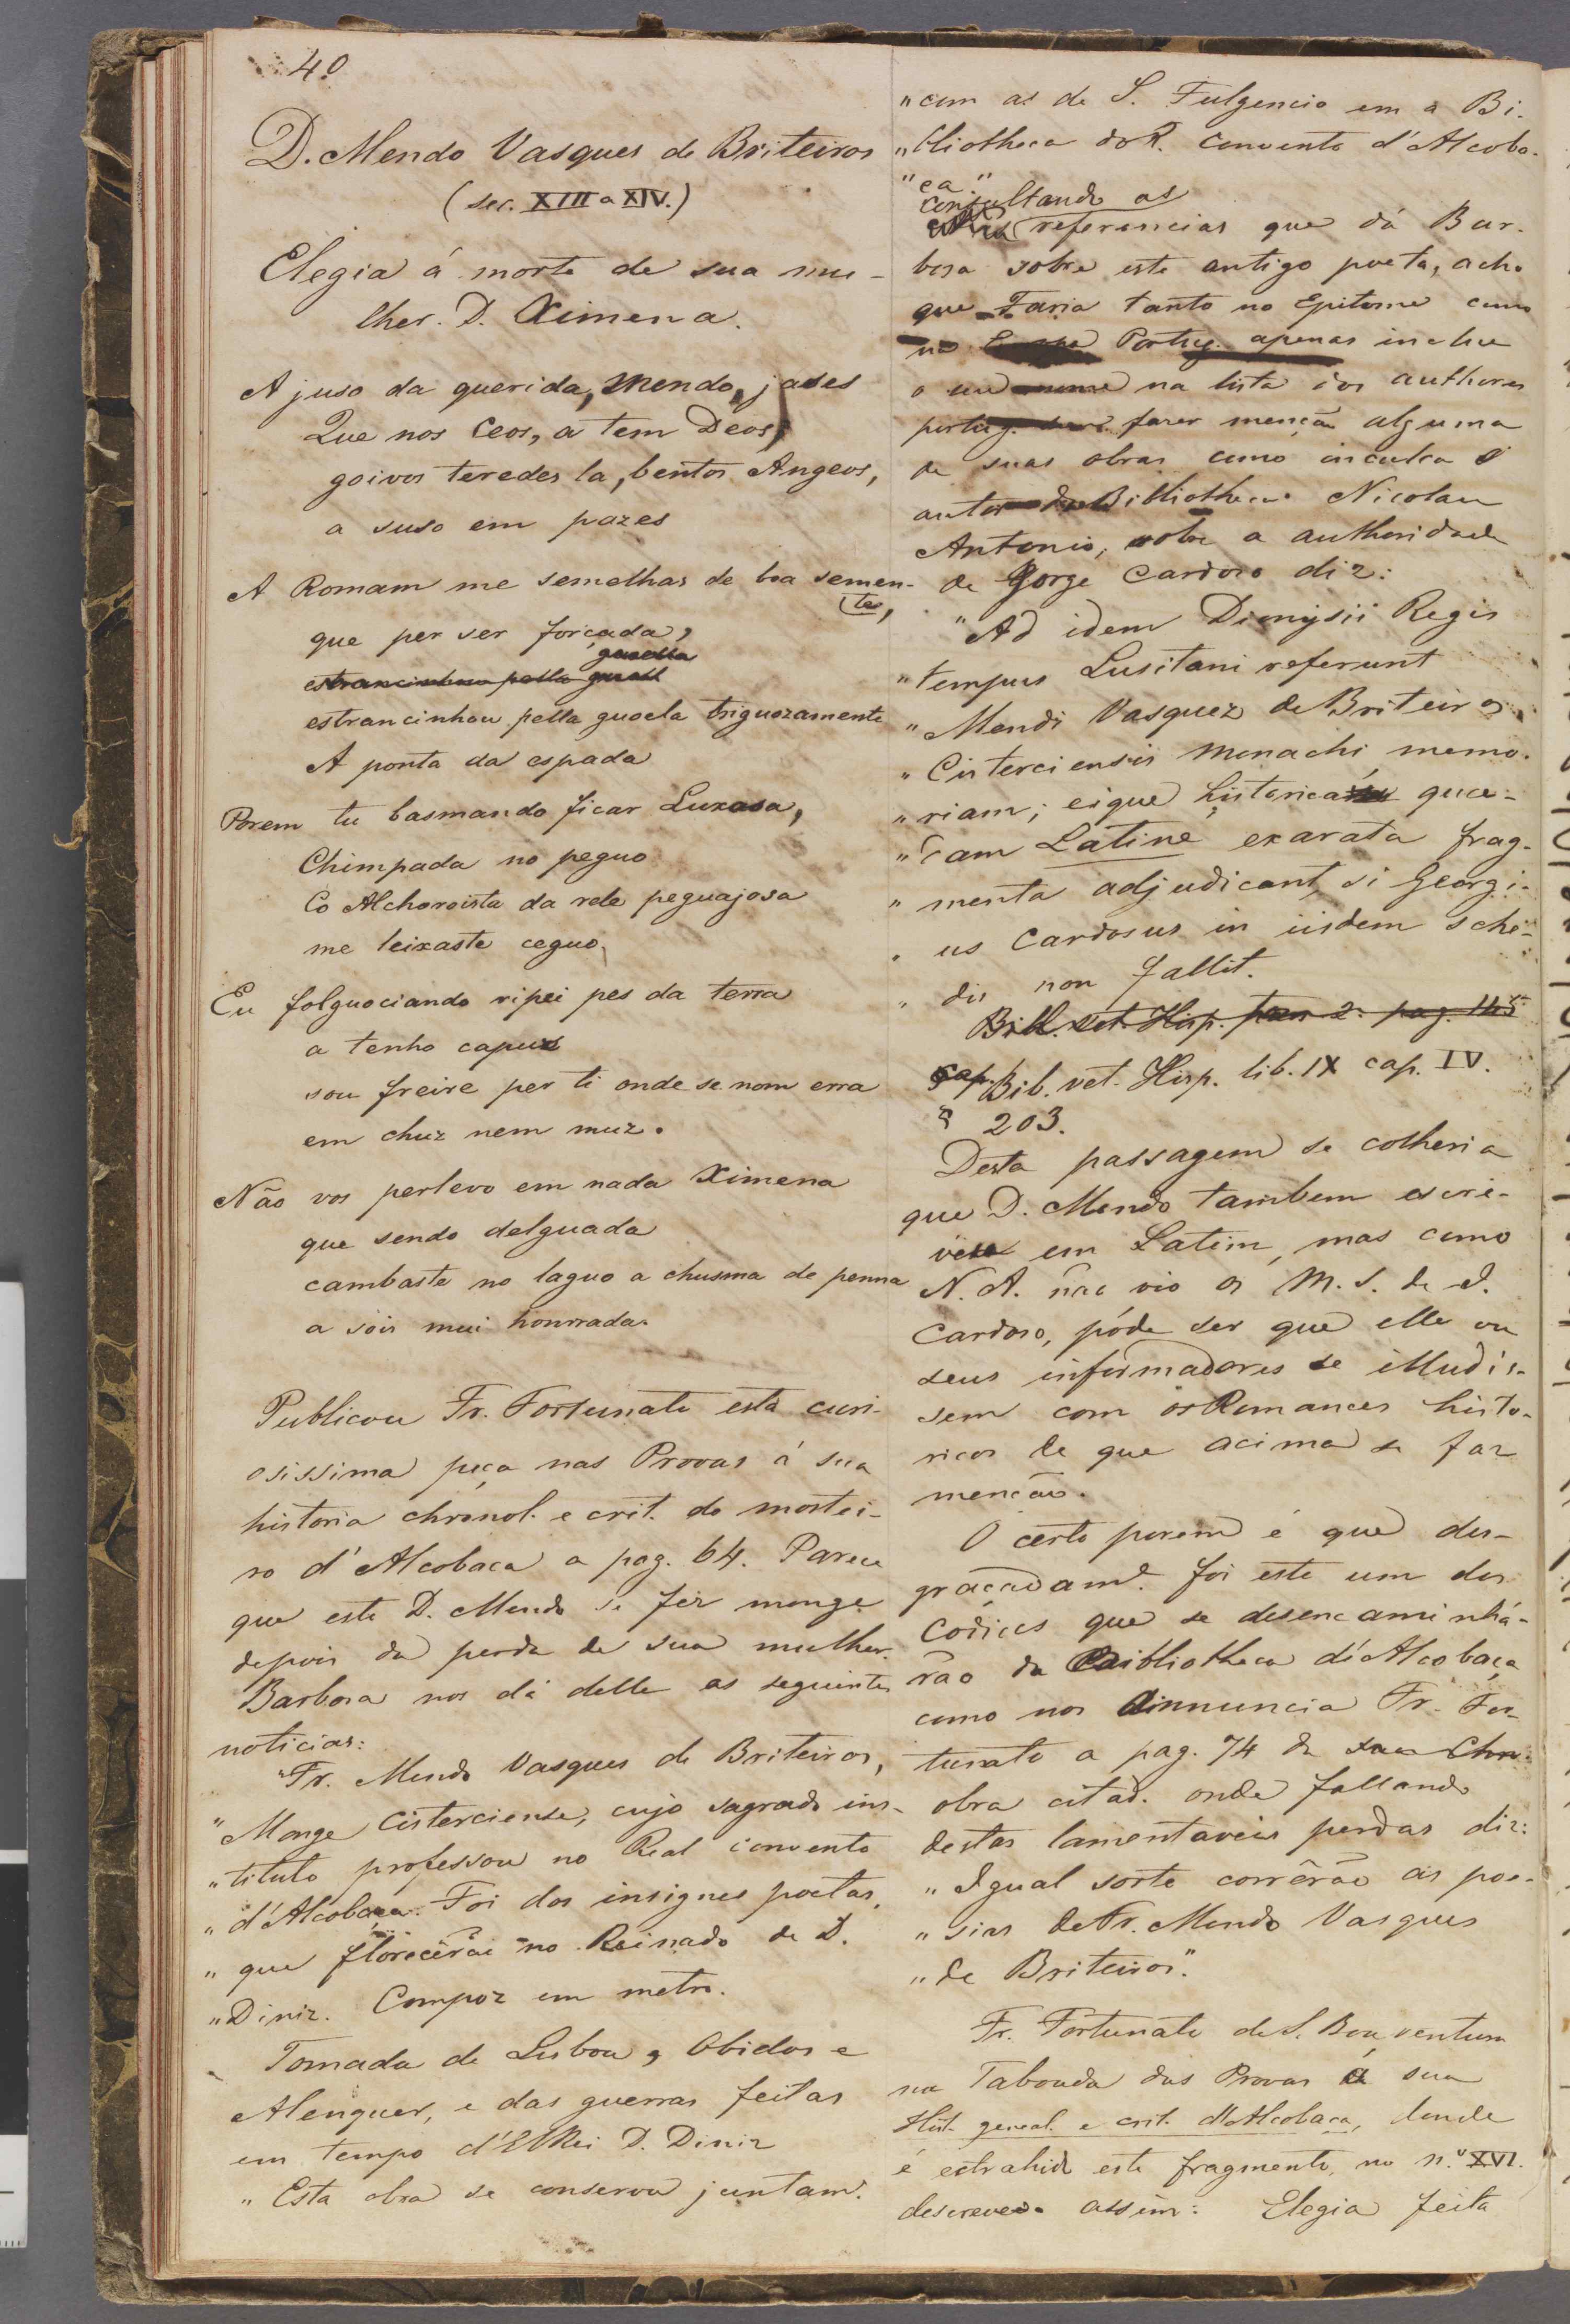 40
D. Mendo Vasques de Briteiros
(sec. XIII a XIV.)
Elegia á morte de sua mu-
lher. D. Ximena.
A juso da querida, Mendo, jades
Que nos Ceos, a tem Deos,
goivos teredes la, bentos Angeos,
a suso em pazes
A Romam me semelhas de boa semen-
te,
que per ser forçada,
estrancinhou pella guoela triguozamente
A ponta da espada
Porem tu basmando ficar Luxosa,
Chimpada no peguo
Co Alchoroista da rede peguajosa
me leixaste ceguo,
Eu folguociando ripei pes da terra
a tenho capuz
sou freire per ti onde se nom erra
em chuz nem muz.
Não vos perlevo em nada Ximena
que sendo delguada
cambaste no laguo a chusma de penna
a sois mui honrrada.
Publicou Fr. Fortunato esta curi-
osissima peça nas Provas á sua
historia chronol. e crit. do mostei-
ro d'Alcobaca a pag. 64. Parece
que este D. Mendo se fez monge
depois da perda de sua mulher.
Barbosa nos dá delle as seguintes
noticias:
"Fr. Mendo Vasques de Briteiros,
"Monge Cisterciense, cujo sagrado ins-
"tituto professou no Real convento
"d'Alcobaça. Foi dos insignes poetas,
"que florecêrão no Reinado de D.
"Diniz. Compoz em metro.
Tomada de Lisboa, Obidos e
Alenquer, e das guerras feitas
em tempo d'ElRei D. Diniz
"Esta obra se conserva juntam.
"com as de S. Fulgencio em a Bi-
"bliotheca do R. Convento d'Alcoba-
"ça."
consultando as
referencias que dá Bar-
bosa sobre este antigo poeta, acho
que Faria tanto no Epitome como
na Portug. apenas inclue
o seu nome na lista dos authores
portug. sem fazer menção alguma
de suas obras como inculca o
autor da Bibliotheca. Nicolau
Antonio, sobre a authoridade
de Jorge Cardoso diz:
"Ad idem Dionysii Regis
"tempus Lusitani referunt
"Mendi Vasquez de Briteiros
"Cisterciensis Monachi memo-
"riam; eique historica quæ-
"dam Latine exarata frag-
"menta adjudicant, si Georgi-
"us Cardosus in iisdem sche-
"dis non fallit.
Bibl. vet. Hisp. tom 2. pag. 115
Bib. vet. Hisp. lib. IX cap. IV.
203.
Desta passagem se colheria
que D. Mendo tambem escre-
vera em Latim, mas como
N. A. não vio os M.S. de J.
Cardoso, póde ser que elle ou
seus informadores se illudis-
sem com os Romances histo-
ricos de que acima se faz
menção.
O certo porem é que des-
graçadam.e foi este um dos
Codices que se desencaminhá-
rão da Bibliotheca d'Alcobaça
como nos annuncia Fr. For-
tunato a pag. 74 da sua Chron.
obra citad. onde fallando
destas lamentaveis perdas diz:
"Igual sorte corrêrão as poe-
"sias de Fr. Mendo Vasques
"de Briteiros."
Fr. Fortunato de S. Boaventura
na Taboada das Provas á sua
Hist. geneal. e crit. d'Alcobaça, donde
é extrahido este fragmento, no n.º XVI.
descreve-o assim: Elegia feita